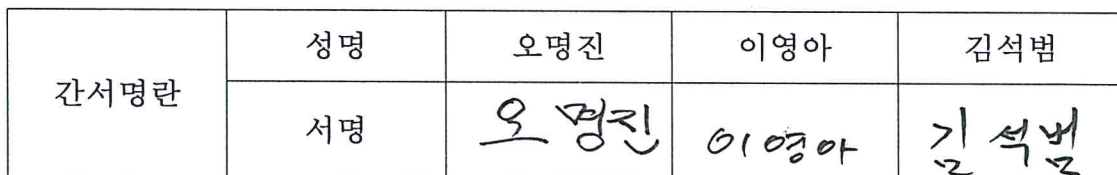 간서명란 성명 오명진 이영아 김석범
서명 오명진 이영아 김석범